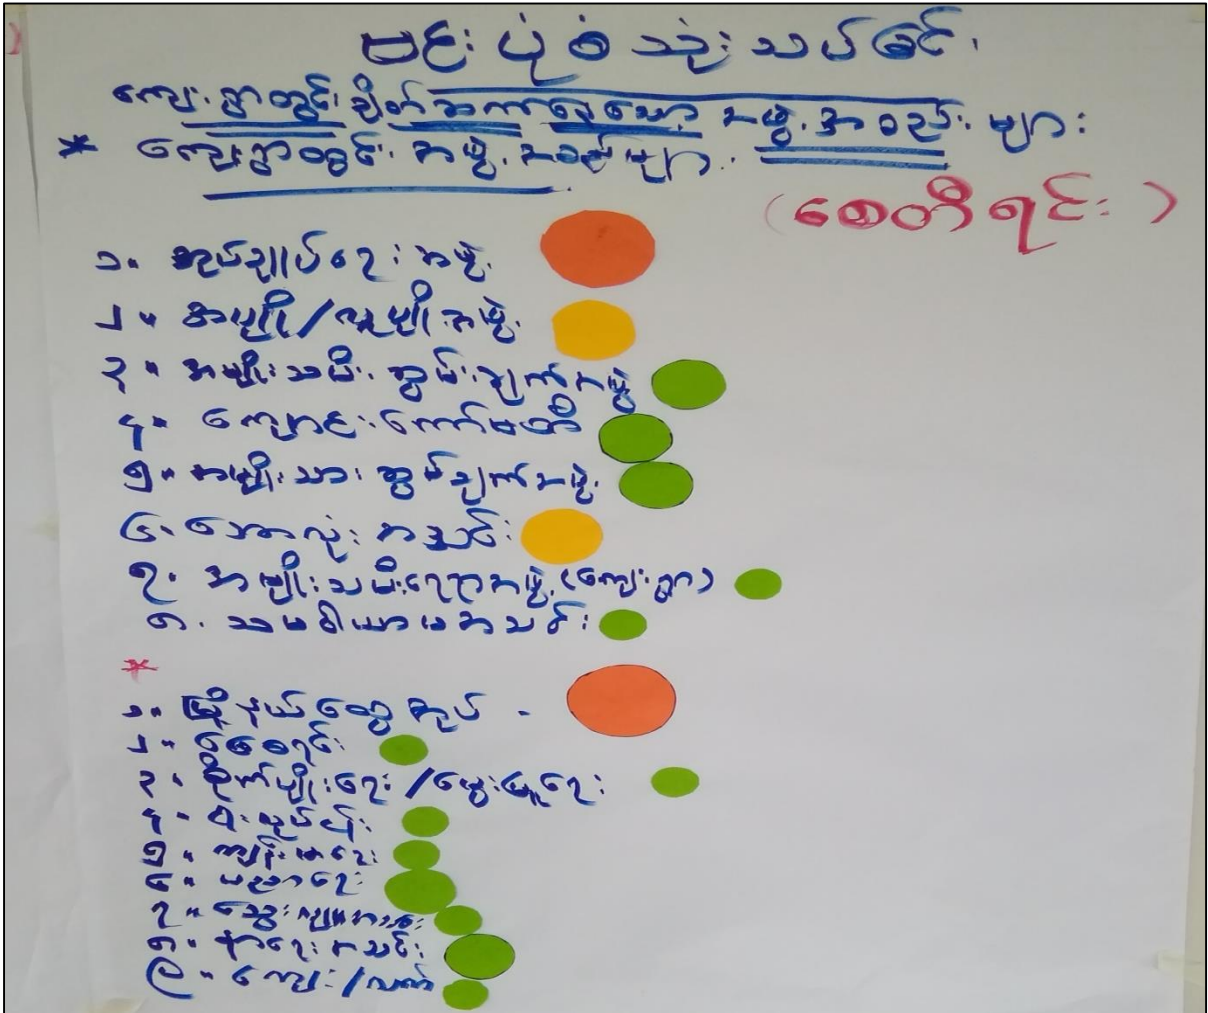 မင်း ပုံစံ သုံးသပ်ခြင်း
ကျေးရွာတွင်း ချိတ်ဆက်နေသော အဖွဲ့အစည်းများ
* ကျေးရွာတွင်း အဖွဲ့အစည်းများ
(စေတီရင်း)
၁။ အုပ်ချုပ်ရေး အဖွဲ့
၂။ အပျို/လူပျို အဖွဲ့
၃။ အမျိုးသမီး အွမ်းချက်အဖွဲ့
၄။ ကျောင်းကော်မတီ
၅။ အမျိုးသား အွမ်ချက်အဖွဲ့
၆။ ဘောလုံး အသင်း
၇။ အမျိုးသမီးရေးရာအဖွဲ့ (ကျေးရွာ)
၈။ သမဝါယာမအသင်း
*
၁။ မြို့နယ်ထွေအုပ် -
၂။ မြေစာရင်း
၃။ စိုက်ပျိုးရေး/မွေးမြူရေး
၄။
၅။ ကျန်းမာရေး
၆။ ပညာရေး
၇။
၈။ နာရေးအသင်း
၉။ ကျေး/လက်